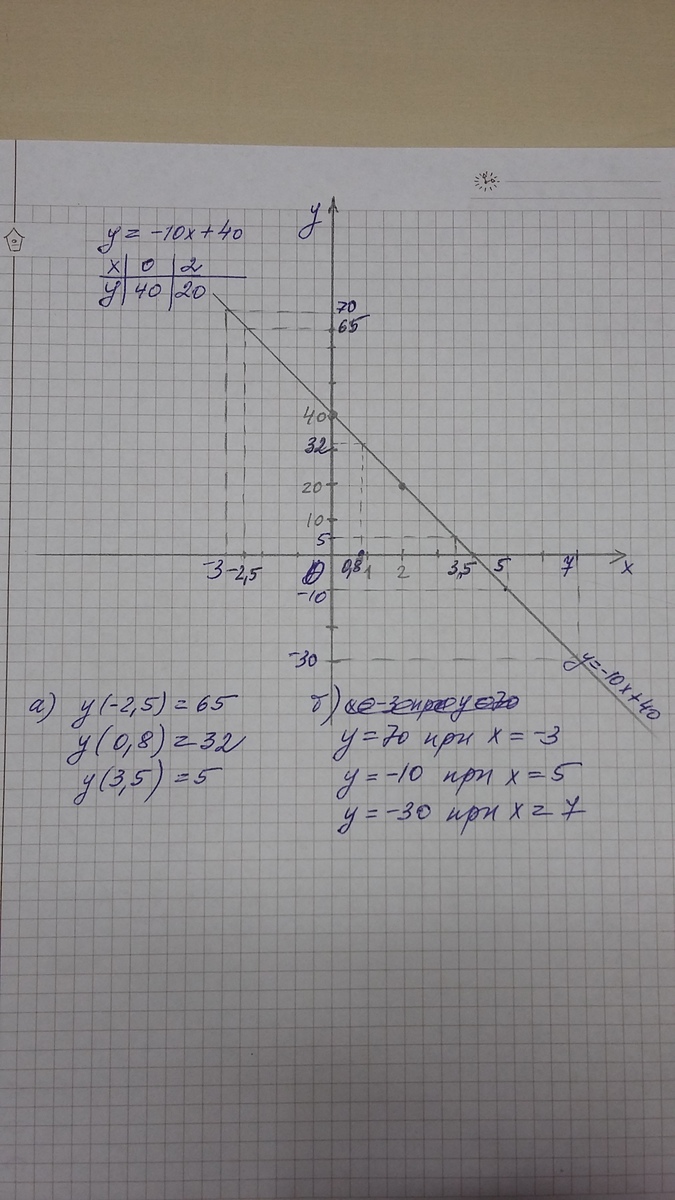 y
y = -10x+40
x | 0 | 2
y | 40 | 20
70
65
40
32
20
10
5
-3 -2,5 0 0,8 1 2 3,5 5 7 x
-10
-30
y=-10x+40
а) y(-2,5) = 65
y(0,8) = 32
y(3,5) = 5
б)
y = 70 при x = -3
y = -10 при x = 5
y = -30 при x = 7